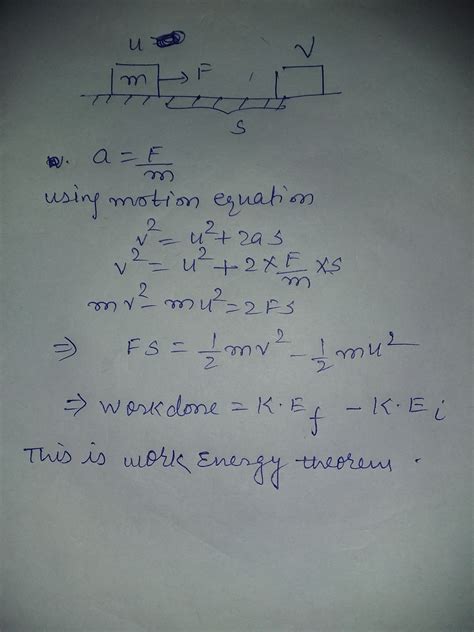 u
V
m → F
S
a = F/m
using motion equation
v² = u² + 2as
v² = u² + 2 × F/m × s
mv² - mu² = 2Fs
⇒ FS = 1/2 mv² - 1/2 mu²
⇒ workdone = K.E_f - K.E_i
This is work Energy theorem.